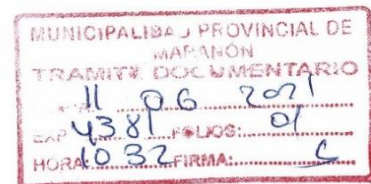 MUNICIPALIDAD PROVINCIAL DE
MARAÑÓN
TRAMITE DOCUMENTARIO
11 06 2021
EXP 4381 FOLIOS: 01
HORA 10 32 FIRMA: